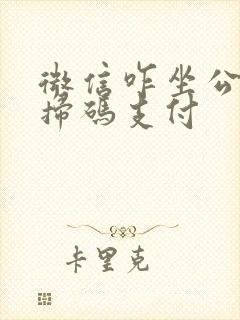 微信咋坐公
掃碼支付
卡里克